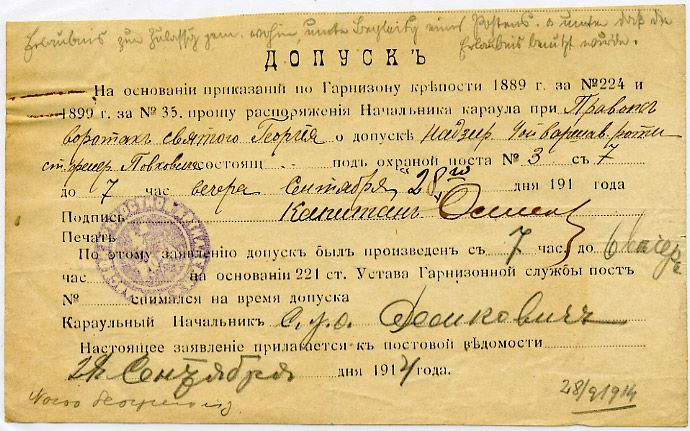 Erlaubnis zur Zulassg gem. wohin unter Begleitg eines Postens. u unter daß die
Erlaubnis benutzt wurde.
ДОПУСКЪ
На основаніи приказаній по Гарнизону крѣпости 1889 г. за №224 и
1899 г. за № 35. прошу распоряженія Начальника караула при
воротахъ святого Георгія о допускѣ Надзир.
состоящ под охраной поста № 3 съ 7
до 7 час вечера Сентября "28го" дня 191 года
Подпись Капитанъ
Печать
По этому заявленію допускъ былъ произведен съ 7 час. до 6
час на основаніи 221 ст. Устава Гарнизонной службы постъ
№ снимался на время допуска
Караульный Начальникъ
Настоящее заявленіе прилагается къ постовой вѣдомости
28 Сентября дня 1914 года.
28/9 1914